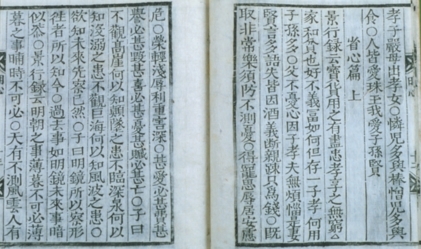 孝子○嚴母出孝女○憐兒多與棒憎兒多與
食○人皆愛珠玉我愛子孫賢
省心篇 上
景行錄云寶貨用之有盡忠孝享之無窮○
家和貧也好不義富如何但存一子孝何用
子孫多○父不憂心因子孝夫無煩惱是妻
賢言多語失皆因酒義斷親疎只爲錢○既
取非常樂須防不測憂○得寵思辱居安慮
危○榮輕辱淺利重害深○甚愛必甚費甚
譽必甚毀甚喜必甚憂甚贓必甚亡○子曰
不觀高崖何以知顚墜之患不臨深泉何以
知沒溺之患不觀巨海何以知風波之患○
欲知未來先察已然○子曰明鏡所以察形
往者所以知今○過去事如明鏡未來事暗
似漆○景行錄云明朝之事薄暮不可必薄
暮之事晡時不可必○天有不測風雲人有